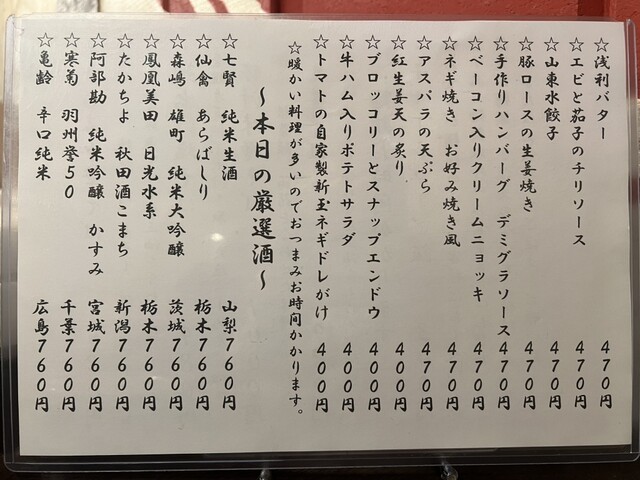 ☆浅利バター 470円
☆エビと茄子のチリソース 470円
☆山東水餃子 470円
☆豚ロースの生姜焼き 470円
☆手作りハンバーグ デミグラソース 470円
☆ベーコン入りクリームニョッキ 470円
☆ネギ焼き お好み焼き風 470円
☆アスパラの天ぷら 470円
☆紅生姜天の炙り 400円
☆ブロッコリーとスナップエンドウ 400円
☆牛ハム入りポテトサラダ 400円
☆トマトの自家製新玉ネギドレがけ 400円
☆暖かい料理が多いのでおつまみお時間かかります。
～本日の厳選酒～
☆七賢 純米生酒 山梨760円
☆仙禽 あらばしり 栃木760円
☆森嶋 雄町 純米大吟醸 茨城760円
☆鳳凰美田 日光水系 栃木760円
☆たかちよ 秋田酒こまち 新潟760円
☆阿部勘 純米吟醸 かすみ 宮城760円
☆寒菊 羽州誉50 千葉760円
☆亀齢 辛口純米 広島760円